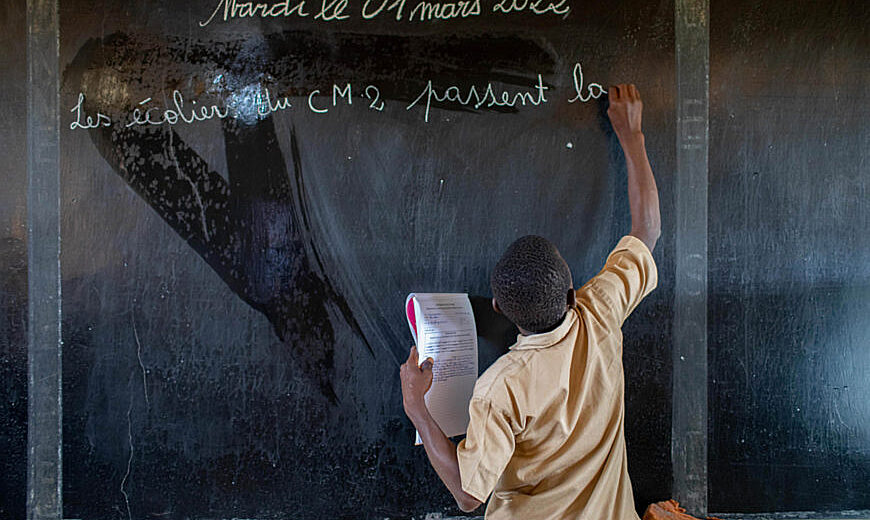 Mardi le 01 mars 2022,
Les écoliers du CM.2 passent la